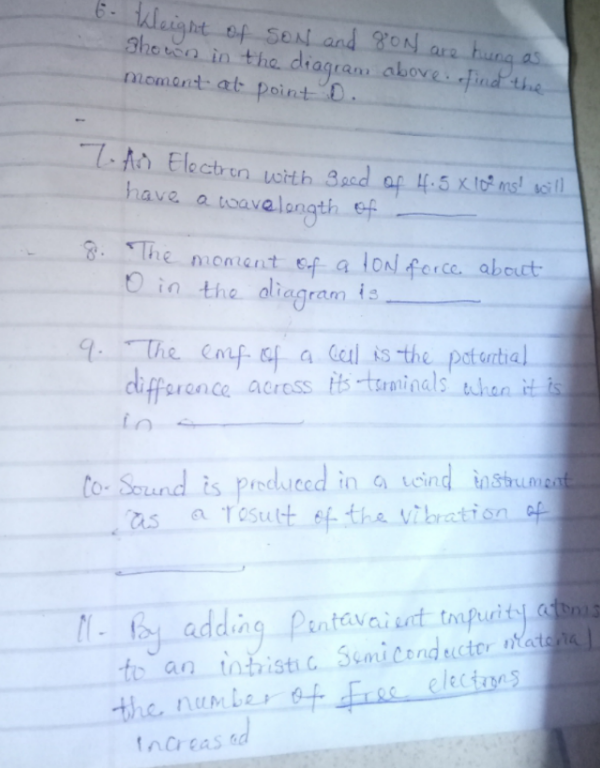 6- Weight of 50N and 80N are hung as
shown in the diagram above. find the
moment at point O.
7- An Electron with Seed of 4.5 x 10² ms¹ will
have a wavelength of ______
8. The moment of a 10N force about
O in the diagram is ______
9. The emf of a Cell is the potential
difference across its terminals when it is
in ______
10- Sound is produced in a wind instrument
as a result of the vibration of
______
11- By adding Pentavaient impurity atoms
to an intristic Semiconductor material
the number of free electrons
increased